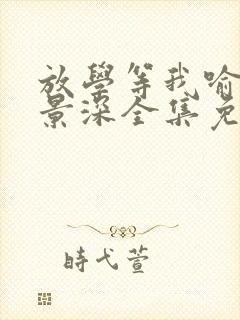 放學等我喻
景深全集免
時弋萱